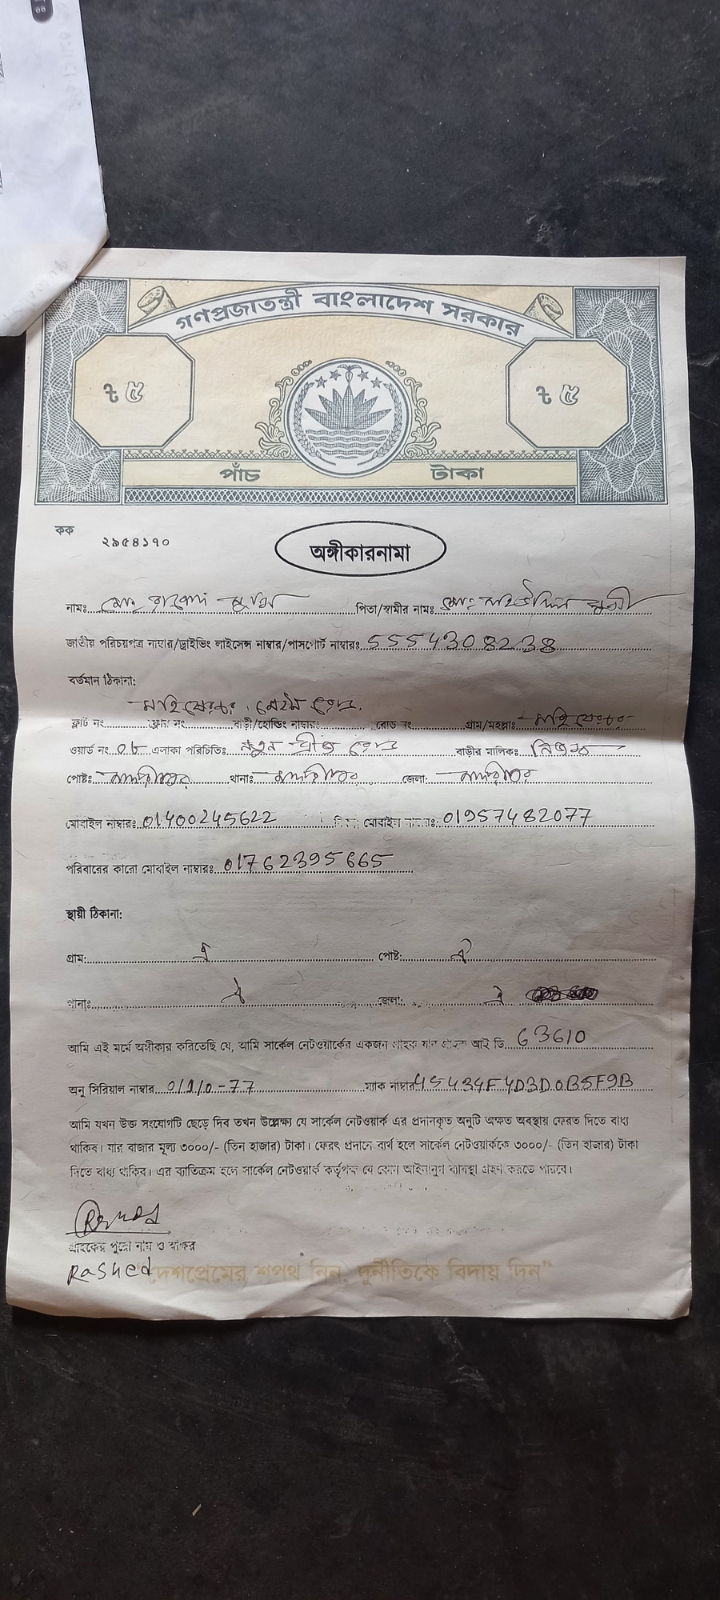 গণপ্রজাতন্ত্রী বাংলাদেশ সরকার
৳ ৫ ৳ ৫
পাঁচ টাকা
কক ২৯৫৪১৭০
অঙ্গীকারনামা
নামঃ মোঃ রাশেদ পিতা/স্বামীর নামঃ মোঃ
জাতীয় পরিচয়পত্র নাম্বার/ড্রাইভিং লাইসেন্স নাম্বার/পাসপোর্ট নাম্বারঃ 5554308238
বর্তমান ঠিকানা:
ফ্লাট নং ফ্লোর নং বাড়ী/হোল্ডিং নাম্বারঃ রোড নং গ্রাম/মহল্লাঃ
ওয়ার্ড নং ০৮ এলাকা পরিচিতিঃ নতুন ব্রীজ বাড়ীর মালিকঃ নিজস্ব
পোষ্টঃ মাদারীপুর থানাঃ মাদারীপুর জেলা: মাদারীপুর
মোবাইল নাম্বারঃ 01400245622 মোবাইল 01957482077
পরিবারের কারো মোবাইল নাম্বারঃ 01762395665
স্থায়ী ঠিকানা:
গ্রাম: ঐ পোষ্ট: ঐ
থানাঃ ঐ জেলা: ঐ
আমি এই মর্মে অঙ্গীকার করিতেছি যে, আমি সার্কেল নেটওয়ার্কের একজন গ্রাহক যার গ্রাহক আই ডি 63610
অনু সিরিয়াল নাম্বার ম্যাক নাম্বার 45434F4D3D0B5F9B
আমি যখন উক্ত সংযোগটি ছেড়ে দিব তখন উল্লেক্ষ্য যে সার্কেল নেটওয়ার্ক এর প্রদানকৃত অনুটি অক্ষত অবস্থায় ফেরত দিতে বাধ্য
থাকিব। যার বাজার মূল্য ৩০০০/- (তিন হাজার) টাকা। ফেরৎ প্রদানে ব্যর্থ হলে সার্কেল নেটওয়ার্ককে ৩০০০/- (তিন হাজার) টাকা
দিতে বাধ্য থাকিব। এর ব্যতিক্রম হলে সার্কেল নেটওয়ার্ক কর্তৃপক্ষ যে কোন আইনানুগ ব্যবস্থা গ্রহন করতে পারবে।
গ্রাহকের পুরো নাম ও স্বাক্ষর
Rashed
"দেশপ্রেমের শপথ নিন, দুর্নীতিকে বিদায় দিন"